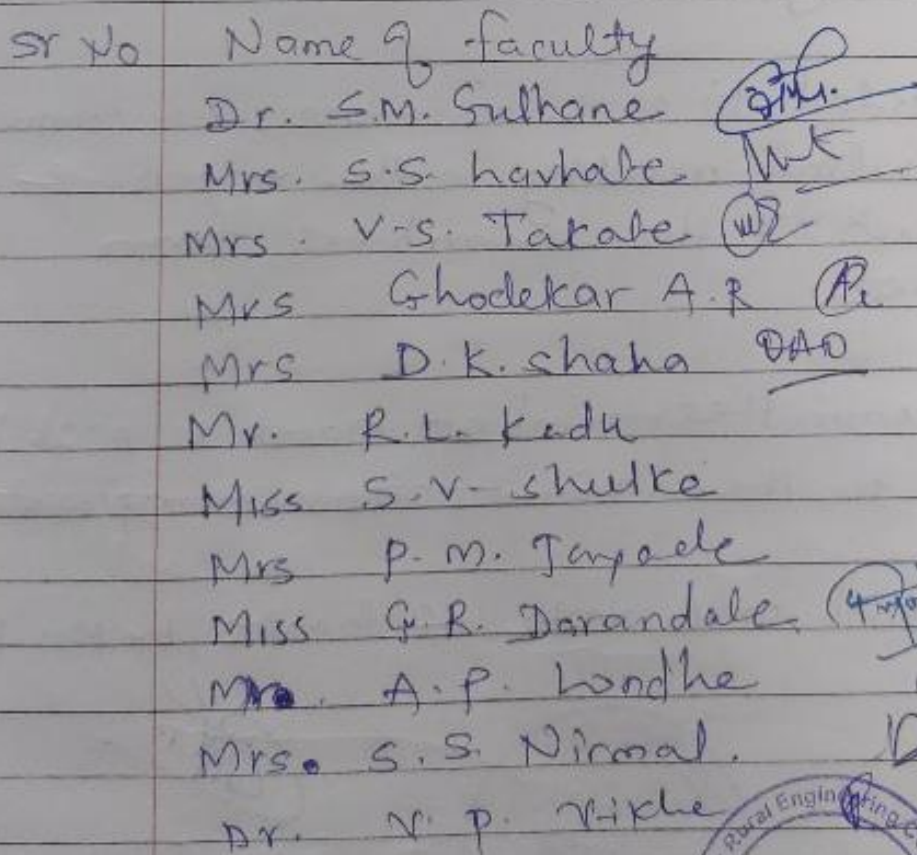 Sr No Name of faculty
Dr. S.M. Gulhane
Mrs. S.S. Lavhate
Mrs. V.S. Takate
Mrs Ghodekar A.R
Mrs D.K. shaha
Mr. R.L. Kadu
Miss S.V. shelke
Mrs P.M.
Miss G.R. Darandale
A.P. Londhe
Mrs. S.S. Nirmal.
Dr. V.P. Vikhe
Rural Engineering